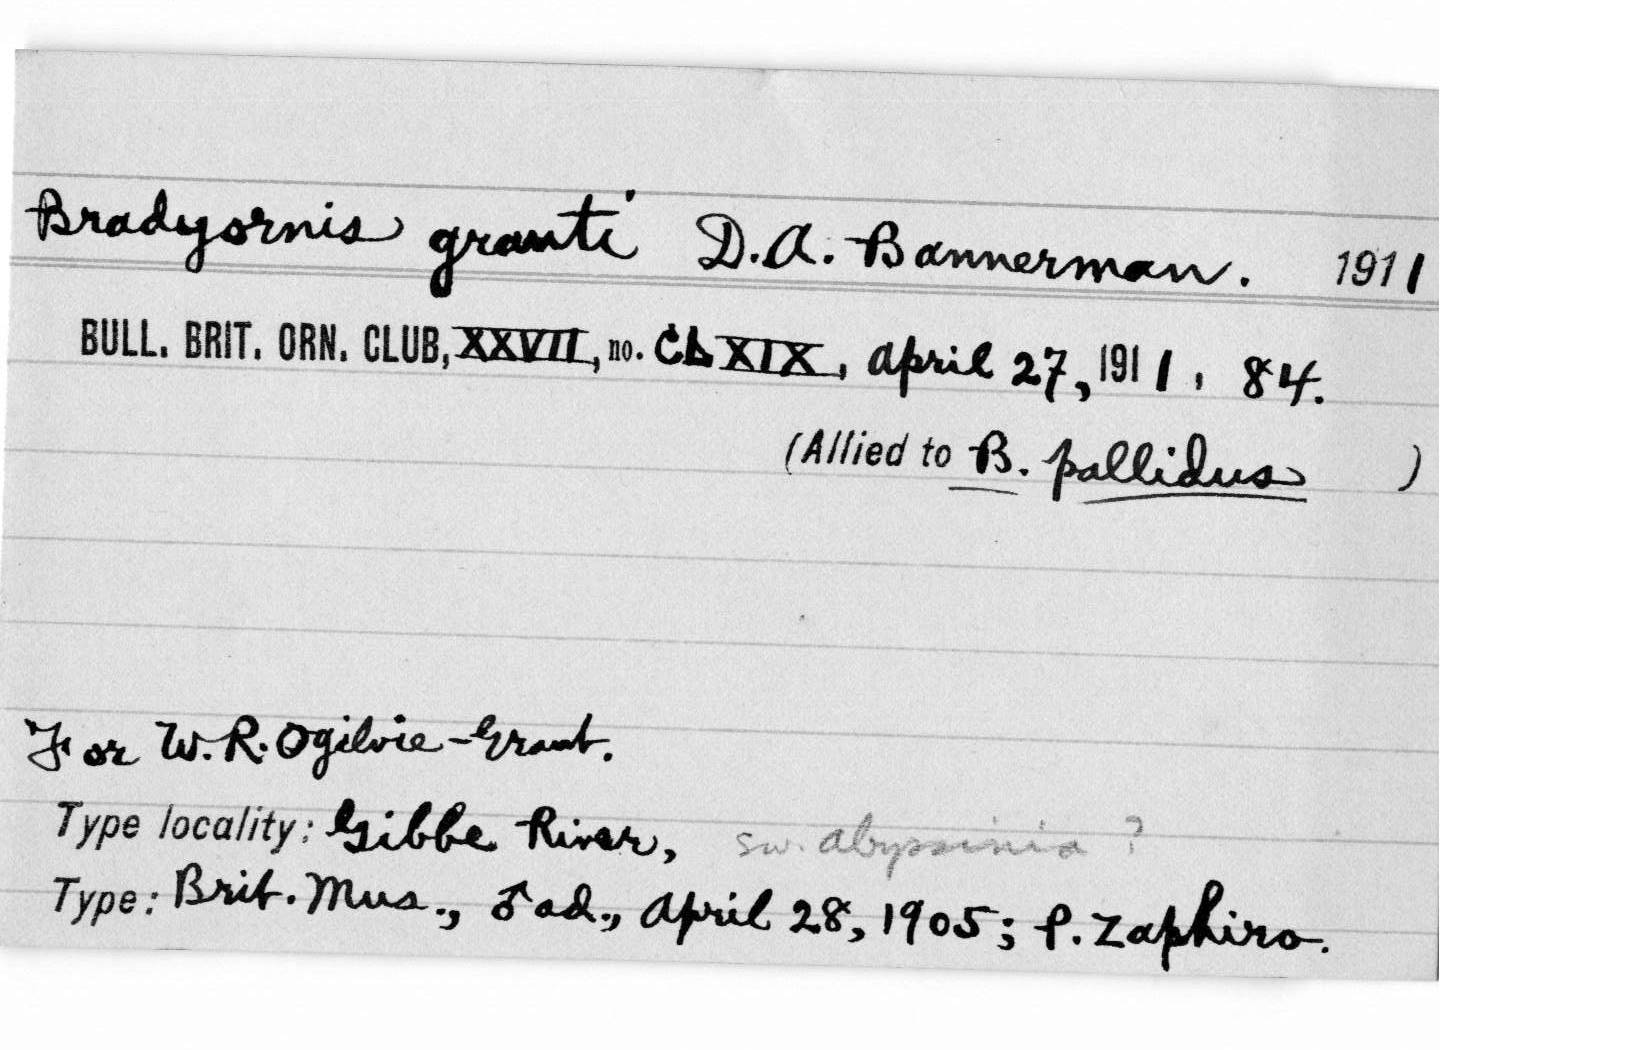 Bradyornis granti D.A. Bannerman. 1911
BULL. BRIT. ORN. CLUB, XXVII, no. CLXIX, April 27, 1911, 84.
(Allied to B. pallidus )
For W. R. Ogilvie-Grant.
Type locality: Gibbe River, sw. Abyssinia ?
Type: Brit. Mus., ♂ ad., April 28, 1905; P. Zaphiro.